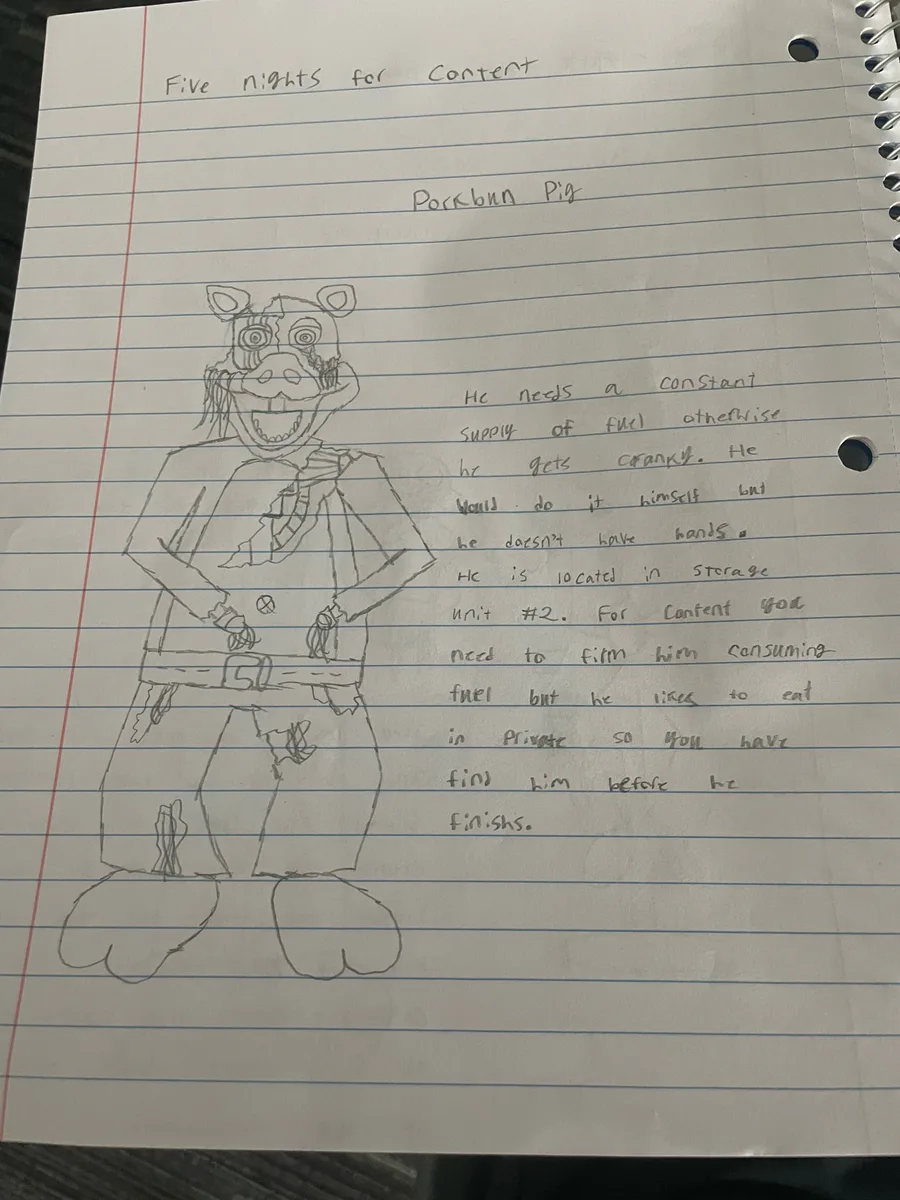 Five nights for Content
Porkbun Pig
He needs a constant
supply of fuel otherwise
he gets cranky. He
would do it himself but
he doesn't have hands.
He is located in storage
unit #2. For Content you
need to film him consuming
fuel but he likes to eat
in private so you have
find him before he
finishs.